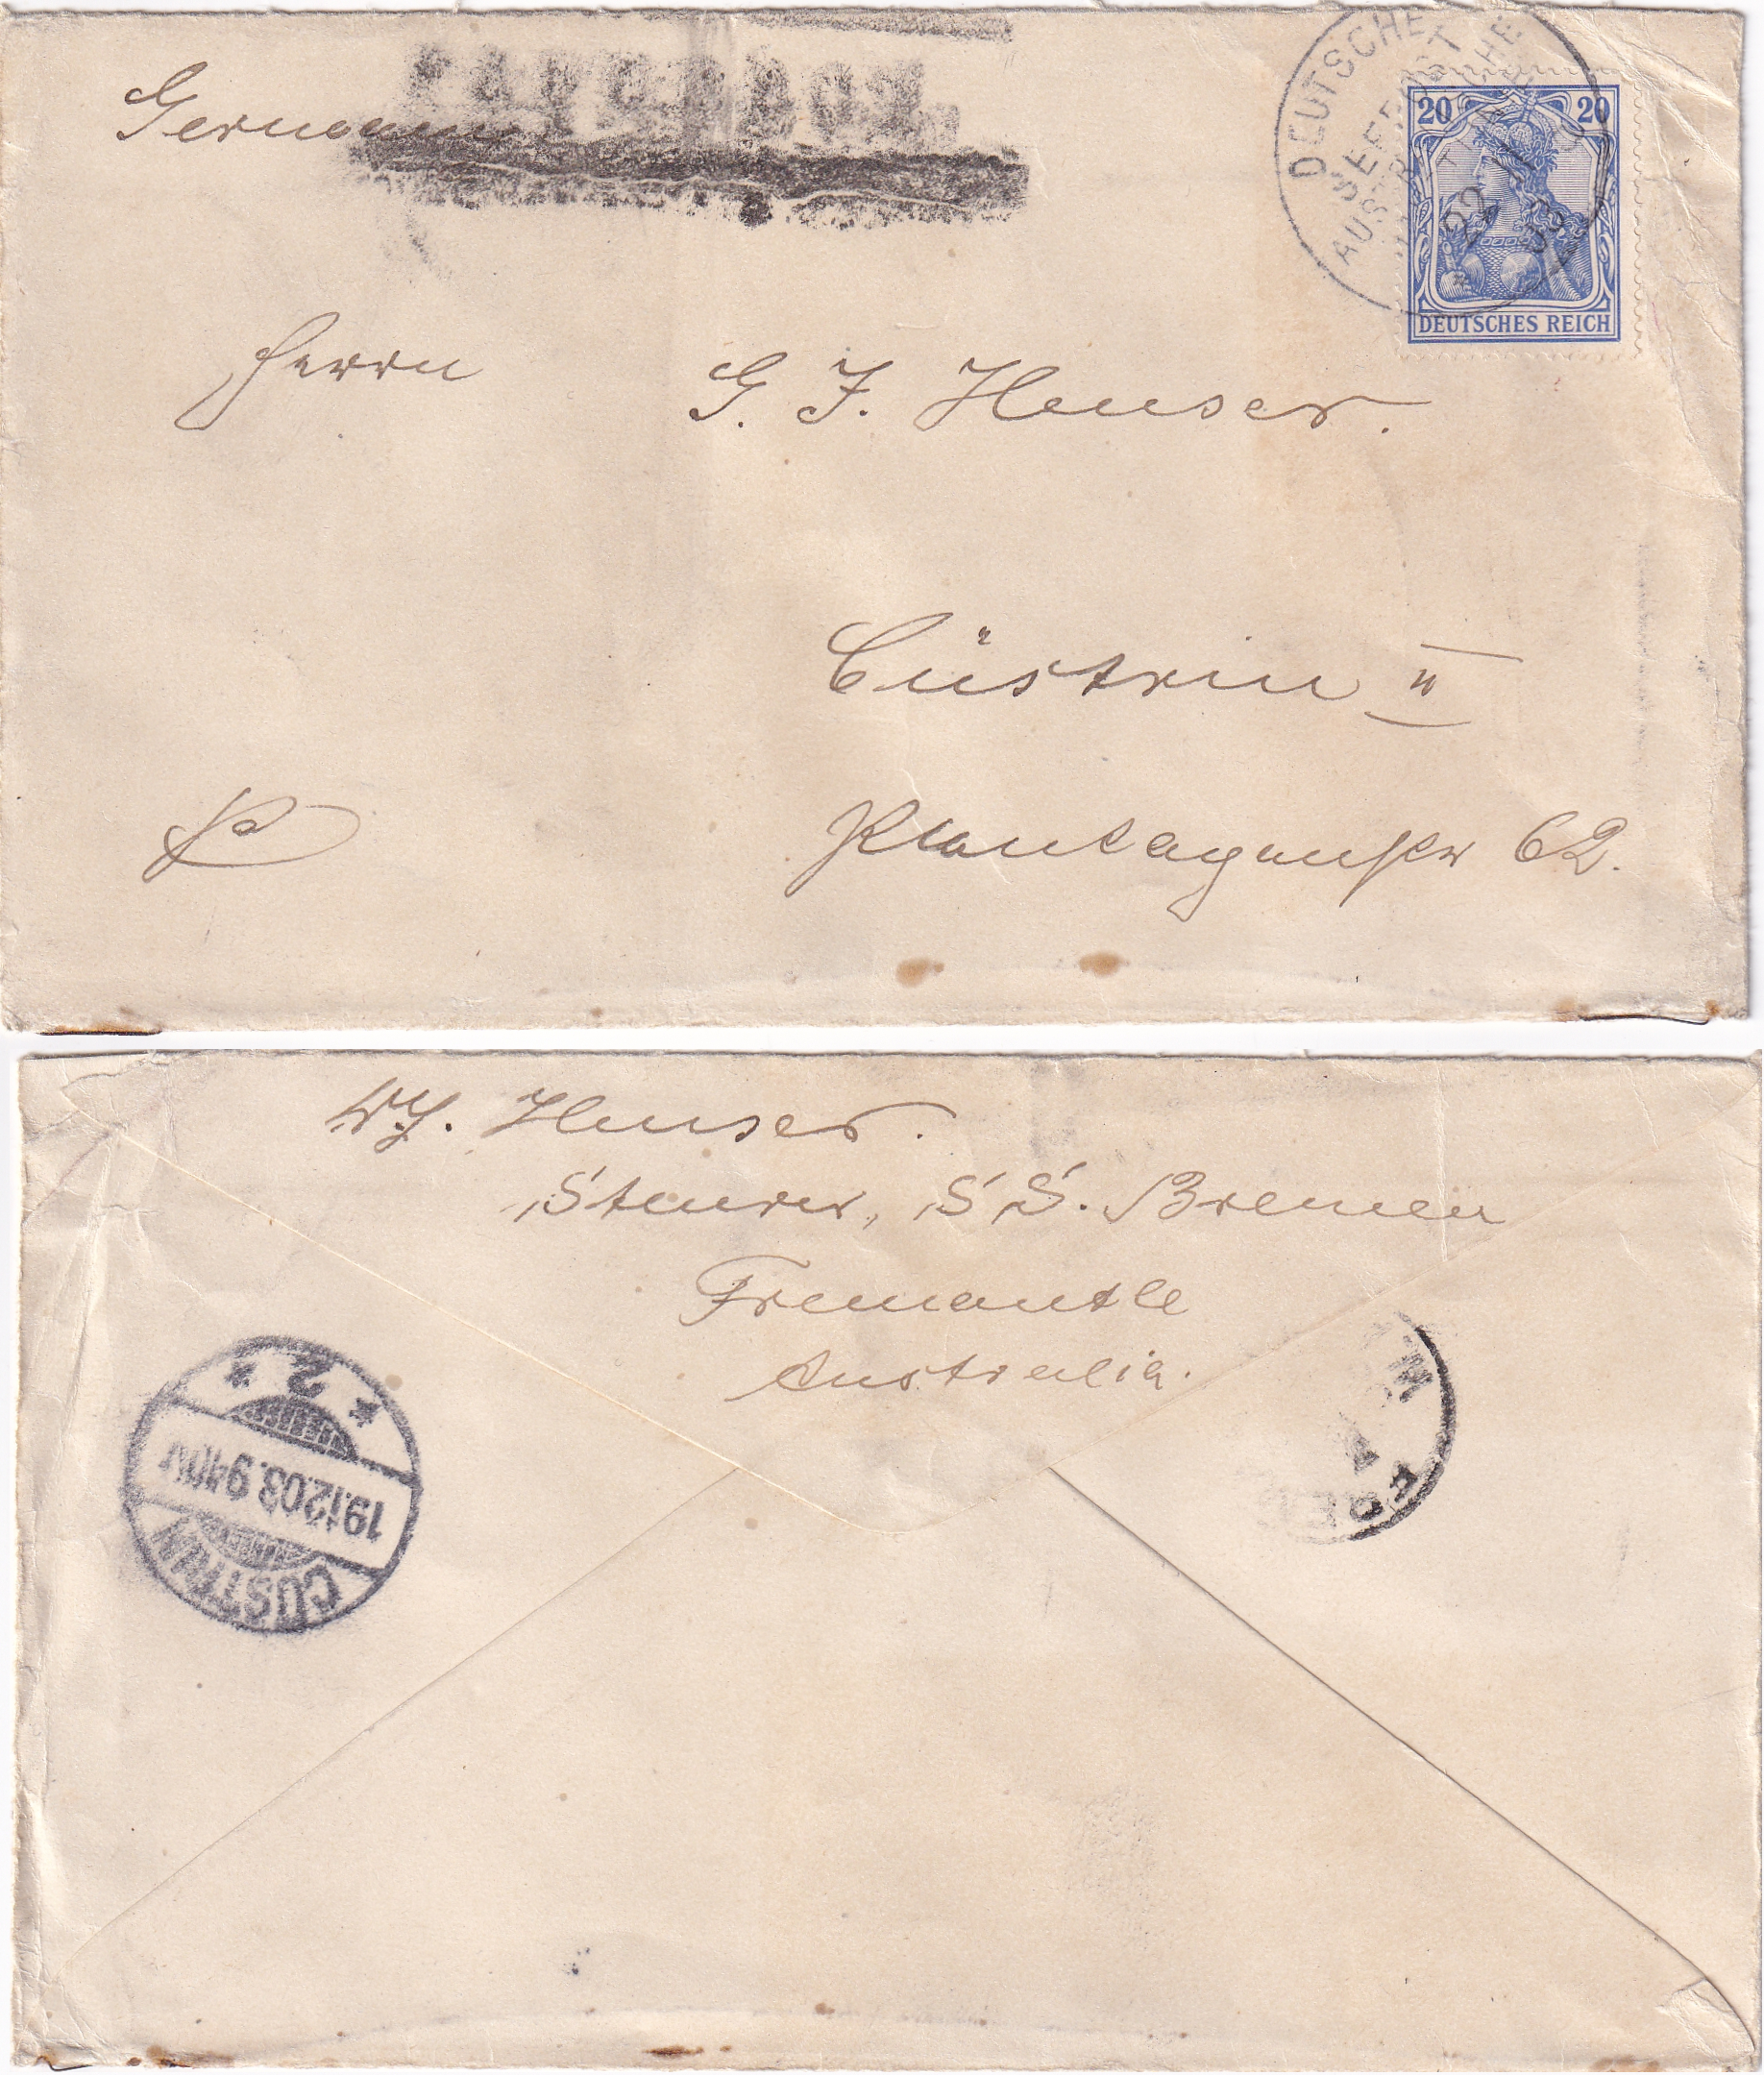 Germany
DEUTSCHE
SEEPOST
AUSTRALISCHE
22 11
03
20 20
DEUTSCHES REICH
Herrn G. F. Heuser.
Cüstrin II
Plantagenstr 62.
W. Heuser.
SS. Bremen
Fremantle
Australia.
CÜSTRIN
19.12.03. 9-10V
* 2 *